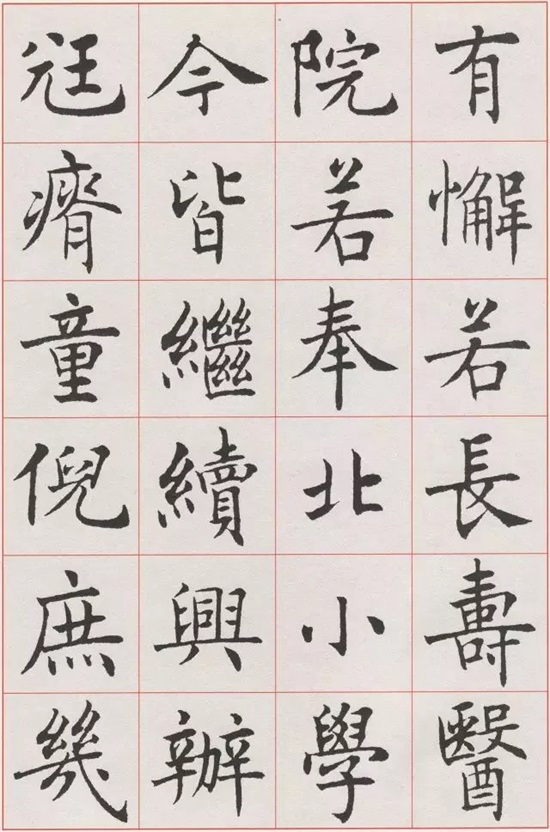 有懈若長壽醫
院若奉北小學
今皆繼續興辦
尫瘠童倪庶幾